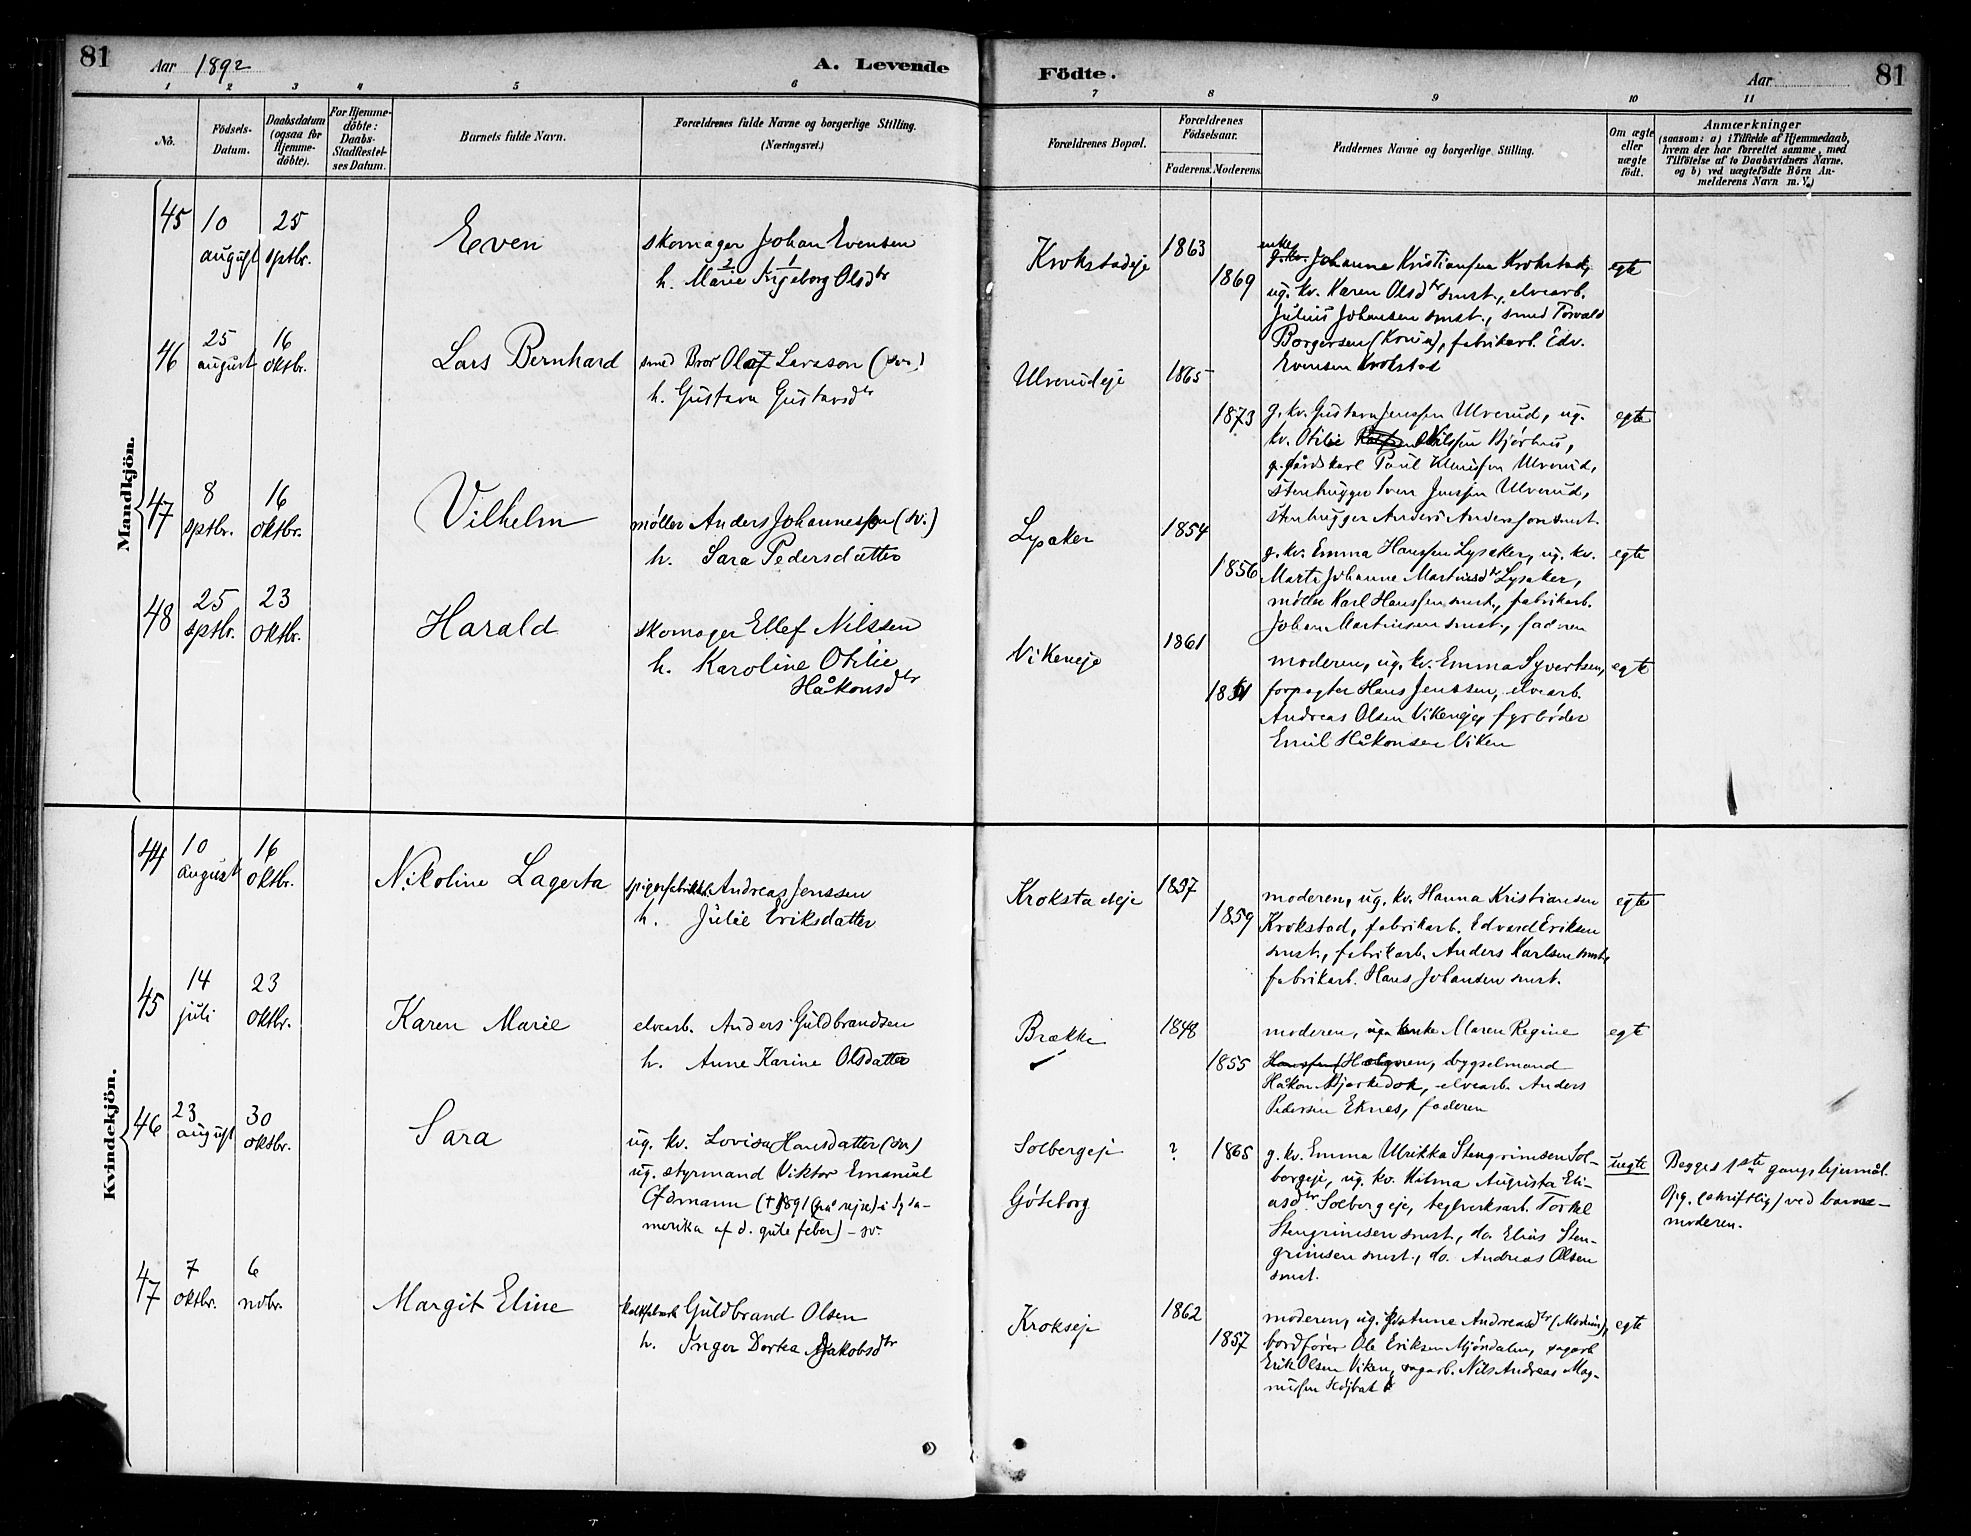 81
Aar 1892
A. Levende
Födte.
Aar
81
1 2 3 4 5 6 7 8 9 10 11
No.
Födsels-
Datum.
Daabsdatum
(ogsaa for
Hjemme-
döbte).
For Hjemme-
döbte:
Daabs-
Stadfæstel-
ses Datum.
Barnets fulde Navn.
Forældrenes fulde Navne og borgerlige Stilling.
(Næringsvei.)
Forældrenes Bopæl.
Forældrenes
Födselsaar.
Faderens. Moderens.
Faddernes Navne og borgerlige Stilling.
Om ægte
eller
uægte
født.
Anmærkninger
(saasom: a) i Tilfælde af Hjemmedaab,
hvem der har forrettet samme, med
Tilføielse af to Daabsvidners Navne.
og b) ved uægtefødte Börn An-
melderens Navn m. V.)
Mandkjön.
45
10
august
25
sptbr.
Even
skomager Johan Evensen
h. Marie Ingeborg Olsdtr
2 1
Krokstadeje
1863
1869
enke
g. kv. Johanne Kristiansen Krokstad,
ug. kv. Karen Olsdtr smst., elvearb.
Julius Johansen smst., smed Torvald
Borgersen, fabrikarb. Edv.
Evensen Krokstad
egte
46
25
august
16
oktbr.
Lars Bernhard
smed Bror Olaf Larsson (sv.)
h. Gustava Gustavsdtr
Ulverudeje
1865
1873
g. kv. Gustava Jenssen Ulverud, ug.
kv. Otilie Nilssen
g. gårdskarl Paul Ulverud,
stenhugger Iver Jenssen Ulverud,
stenhugger Anders Andersson smst.
egte
47
8
sptbr.
16
oktbr.
Vilhelm
møller Anders Johannesson (sv.)
h. Sara Pedersdatter
Lysaker
1854
1856
g. kv. Emma Hanssen Lysaker, ug. kv.
Marte Johanne Martinsdtr Lysaker,
møller Karl Hanssen smst., fabrikarb.
Johan Martinsen smst., fadren
egte
48
25
sptbr.
23
oktbr.
Harald
skomager Ellef Nilssen
h. Karoline Otilie
Håkonsdtr
Vikeneje
1861
1861
moderen, ug. kv. Emma Syvertsen,
forpagter Hans Jenssen, elvearb.
Andreas Olsen Vikeneje, fyrbøder
Emil Håkonsen Viken
egte
Kvindekjön.
44
10
august
16
oktbr.
Nikoline Lagerta
Andreas Jenssen
h. Julie Eriksdatter
Krokstadeje
1857
1859
moderen, ug. kv. Hanna Kristiansen
Krokstad, fabrikarb. Edvard Eriksen
smst., fabrikarb. Anders Karlsen smst.,
fabrikarb. Hans Johansen smst.
egte
45
14
juli
23
oktbr.
Karen Marie
elvearb. Anders Guldbrandsen
h. Anne Karine Olsdatter
Brække
1848
1855
moderen, enke Maren Regine
Hanssen Hælgeren, bygselmand
Håkon Bjerkedok, elvearb. Anders
Pedersen Eknes, faderen
egte
46
23
august
30
oktbr.
Sara
ug. kv. Lovisa Hansdatter (sv.)
ug. styrmand Viktor Emanuel
(† 1891 (på rejse) i Syda-
merika af d. gule feber) - sv.
Solbergeje
Göteborg
?
1865
g. kv. Emma Ulrikka Stengrimsen Sol-
bergeje, ug. kv. Hilma Augusta Eli-
asdtr Solbergeje, teglverksarb. Torkel
Stengrimsen smst., do. Elias Sten-
grimsen smst., do. Andreas Olsen
smst.
uegte
Begges 1ste gangs lejermål.
Opg. (skriftlig) ved barne-
moderen.
47
7
oktbr.
6
novbr.
Margit Eline
Guldbrand Olsen
h. Inger Dortea Jakobsdtr
Krokseje
1862
1857
moderen, ug. Andreasdtr
bordfører Ole Eriksen Mjøndalen, sagarb.
Erik Olsen Viken, sagarb. Nils Andreas Mag-
nussen
egte